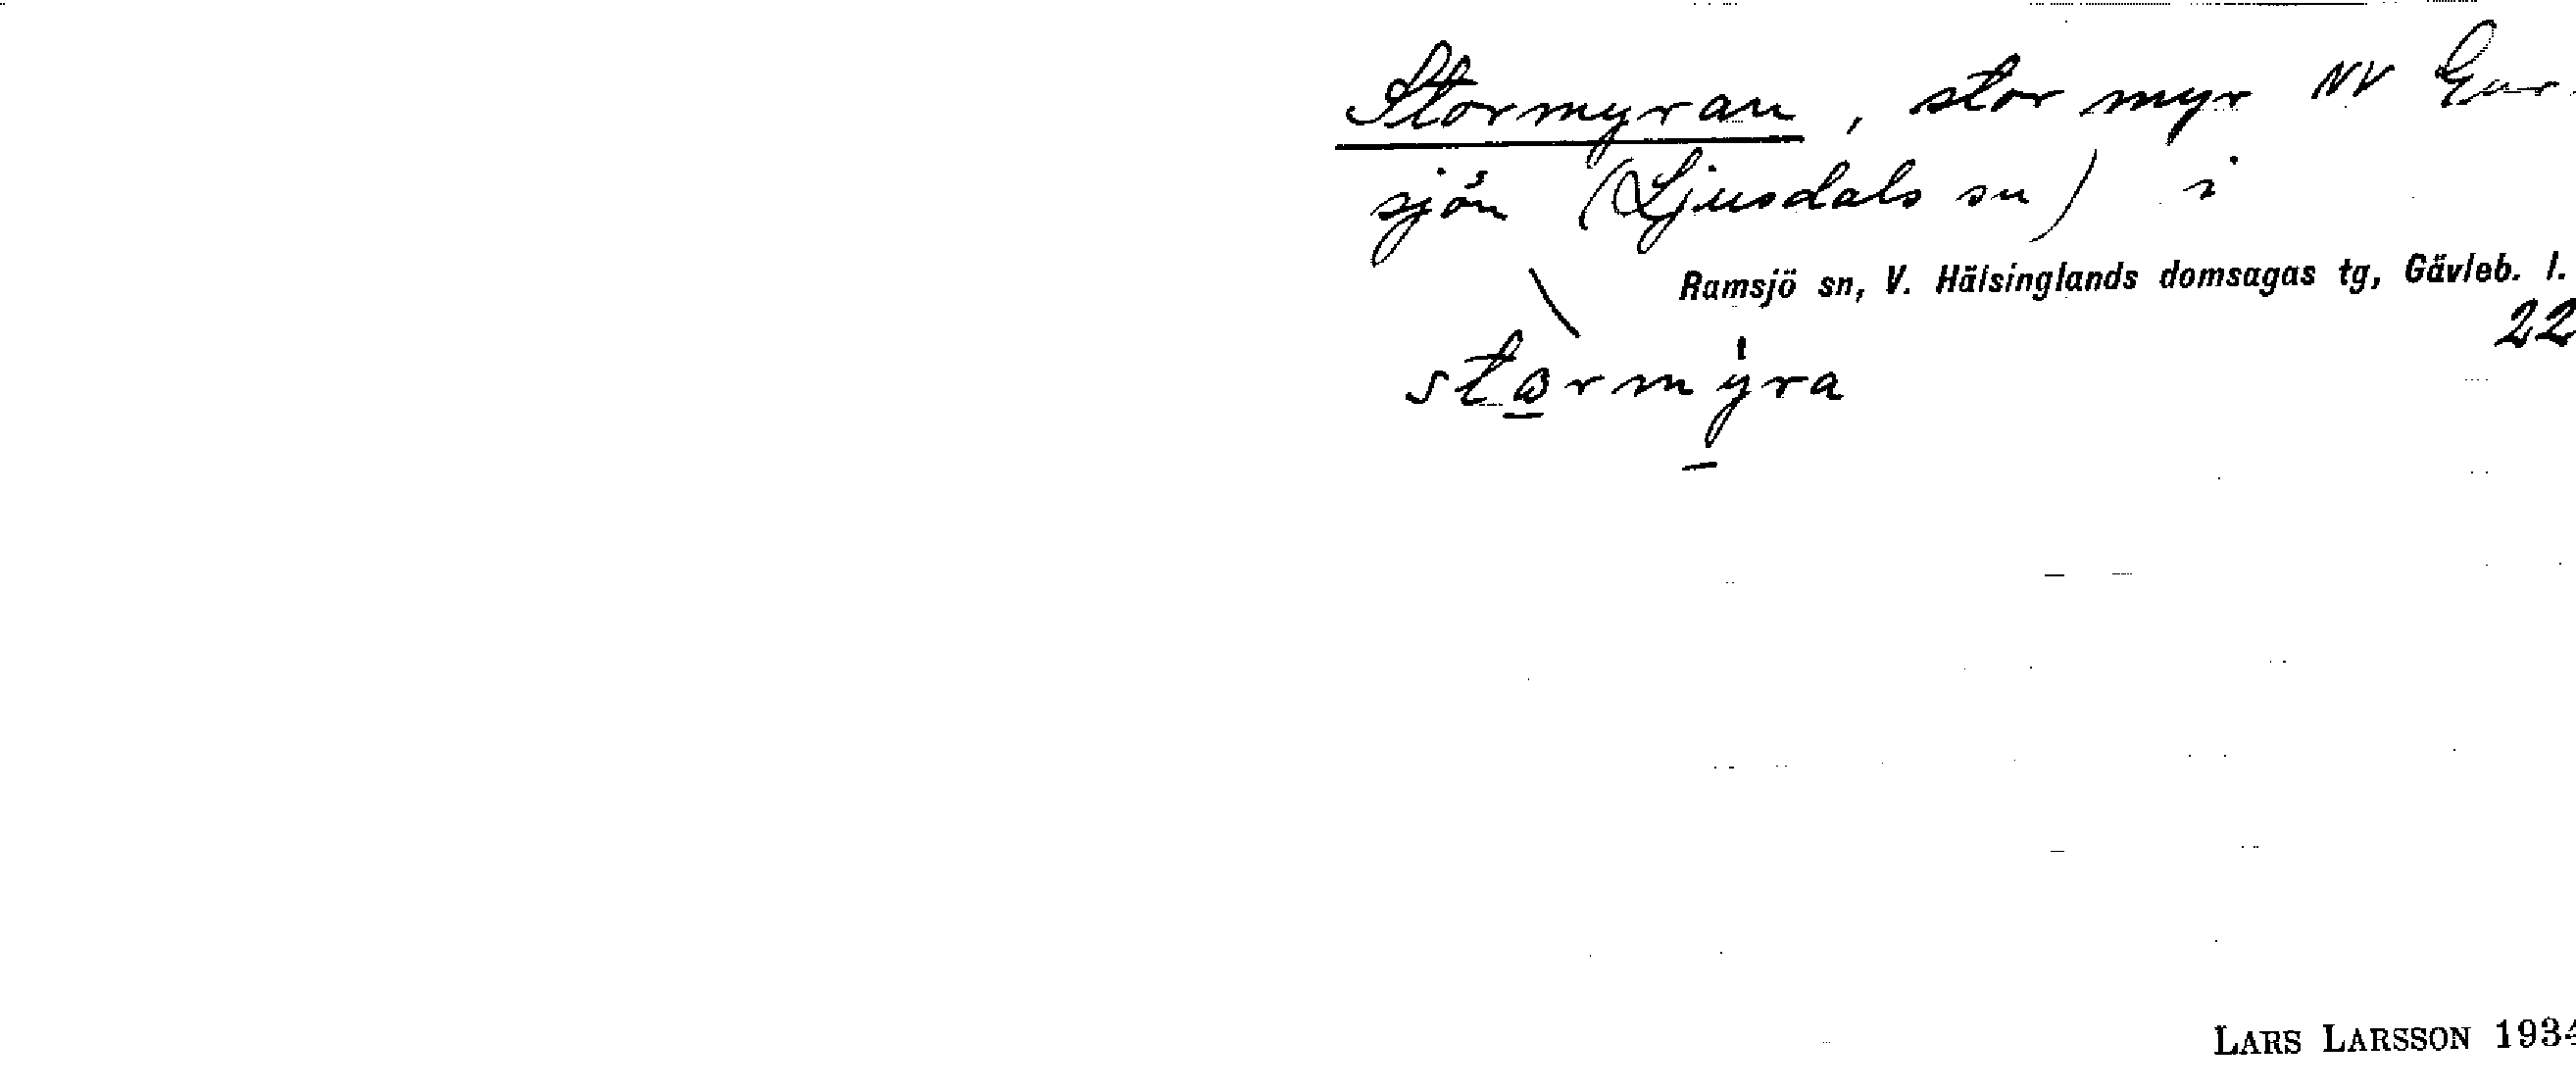 Stormyran, stor myr NV
sjön (Ljusdals sn) i
Ramsjö sn, V. Hälsinglands domsagas tg, Gävleb. l.
22
LARS LARSSON 1934